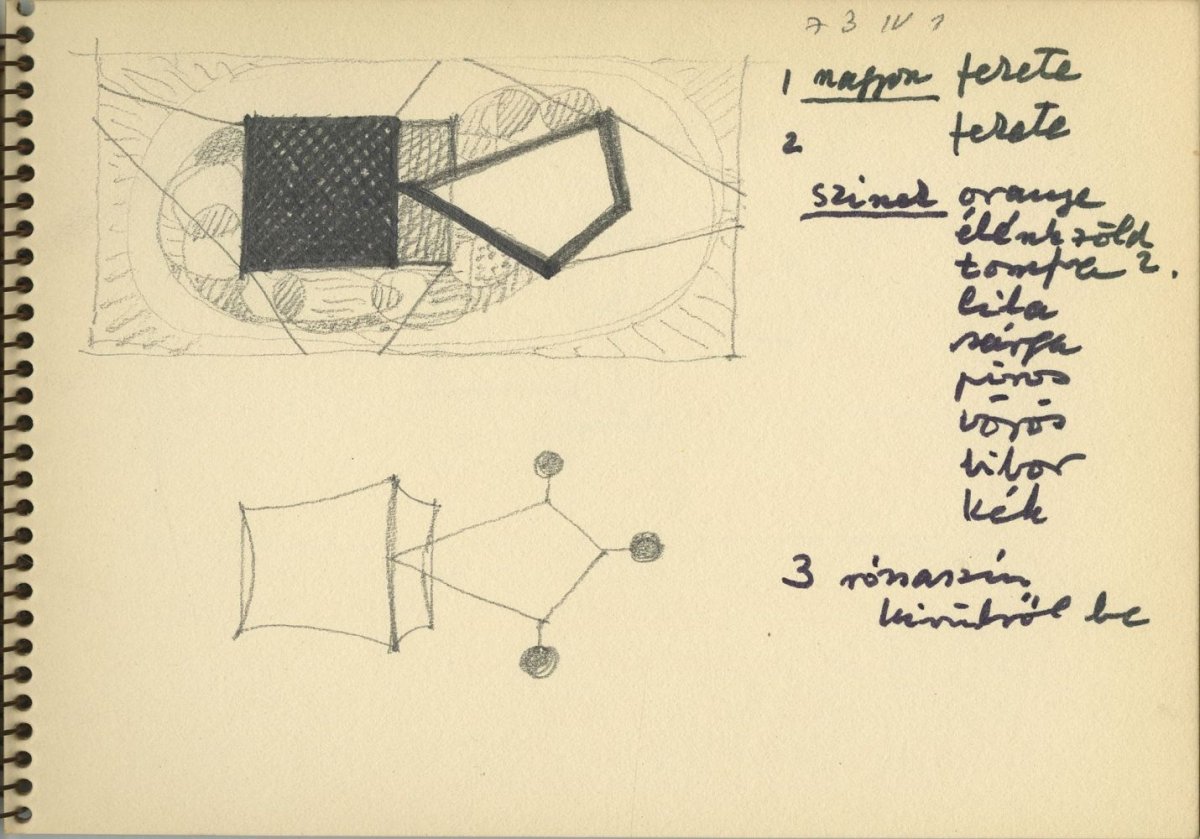 73 IV 1
1 nagyon fekete
2 fekete
szinek orange
élénk zöld
tompa z.
lila
sárga
piros
vörös
bibor
kék
3 rózsaszín
kivülről be